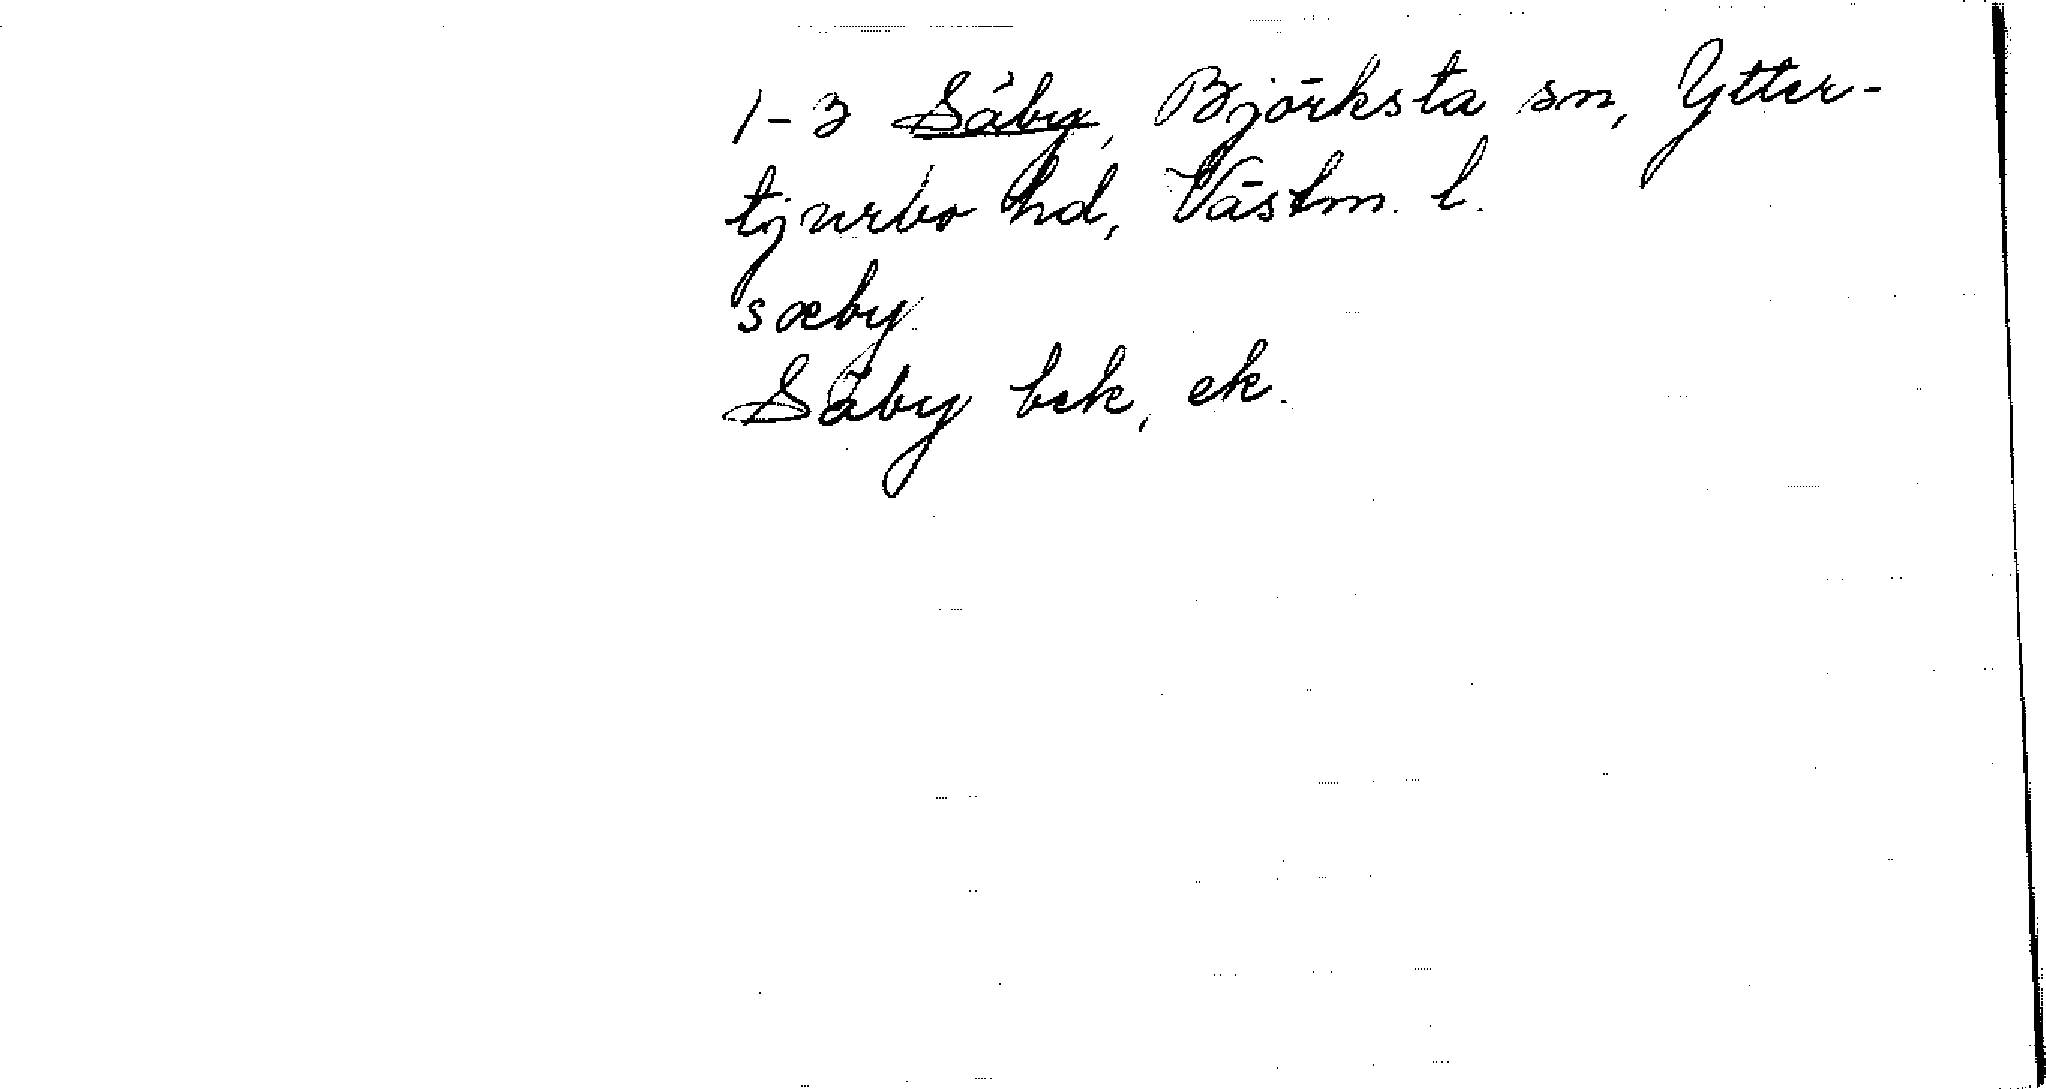 1-3 Säby, Björksta sn, Ytter-
tjurbo hd, Västm. l.
sæby
Säby bek, ek.